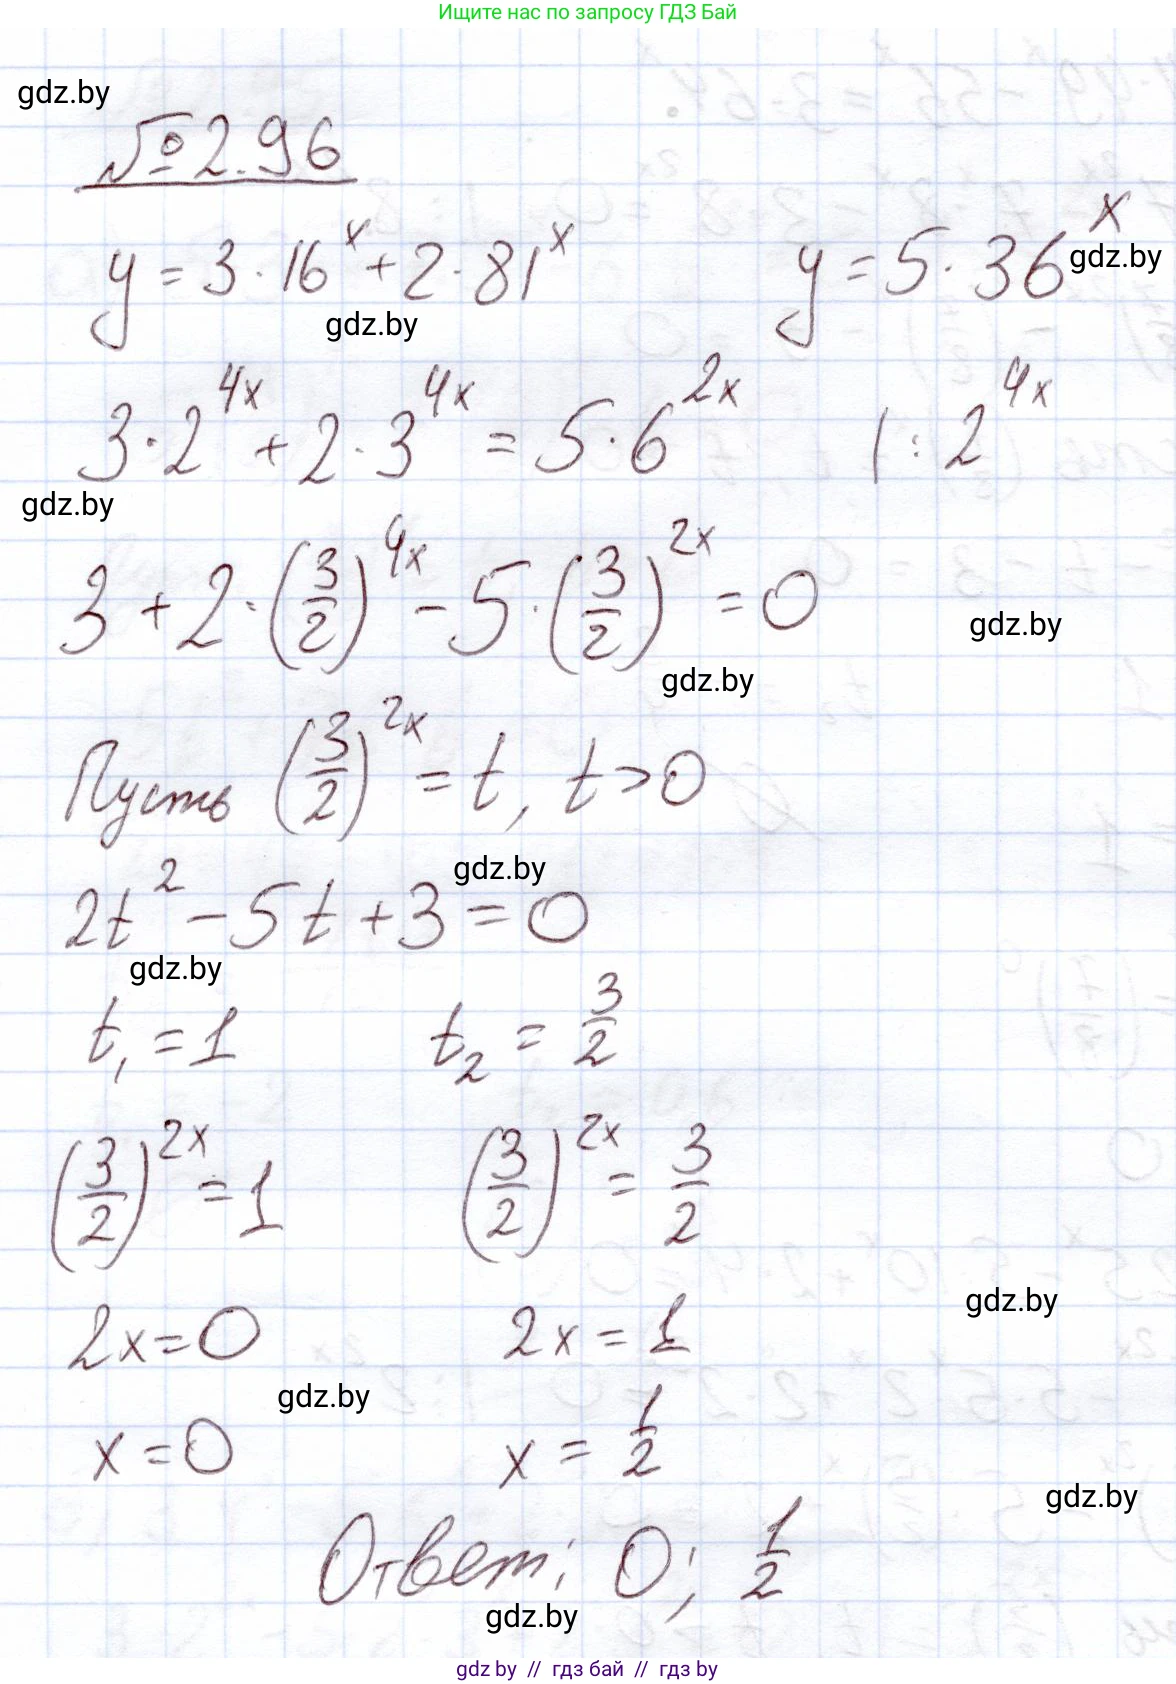 Ищите нас по запросу ГДЗ Бай
gdz.by
№ 2.96
y = 3 · 16^x + 2 · 81^x y = 5 · 36^x
gdz.by
gdz.by
3 · 2^{4x} + 2 · 3^{4x} = 5 · 6^{2x} | : 2^{4x}
gdz.by
3 + 2 · (3/2)^{4x} - 5 · (3/2)^{2x} = 0
gdz.by
gdz.by
Пусть (3/2)^{2x} = t, t > 0
gdz.by
2t² - 5t + 3 = 0
gdz.by
t₁ = 1 t₂ = 3/2
(3/2)^{2x} = 1 (3/2)^{2x} = 3/2
gdz.by
2x = 0 2x = 1
gdz.by
x = 0 x = 1/2
gdz.by
Ответ: 0; 1/2
gdz.by
gdz by // гдз бай // гдз by